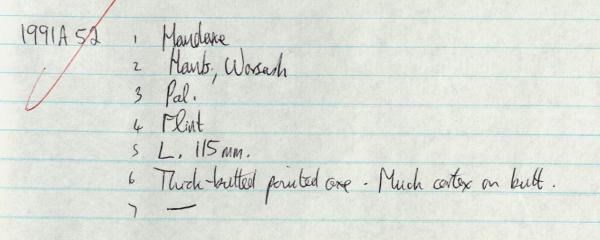 1991A 52 1 Handaxe
2 Hants, Warsash
3 Pal.
4 Flint
5 L. 115mm.
6 Thick-butted pointed axe. Much cortex on butt.
7 —